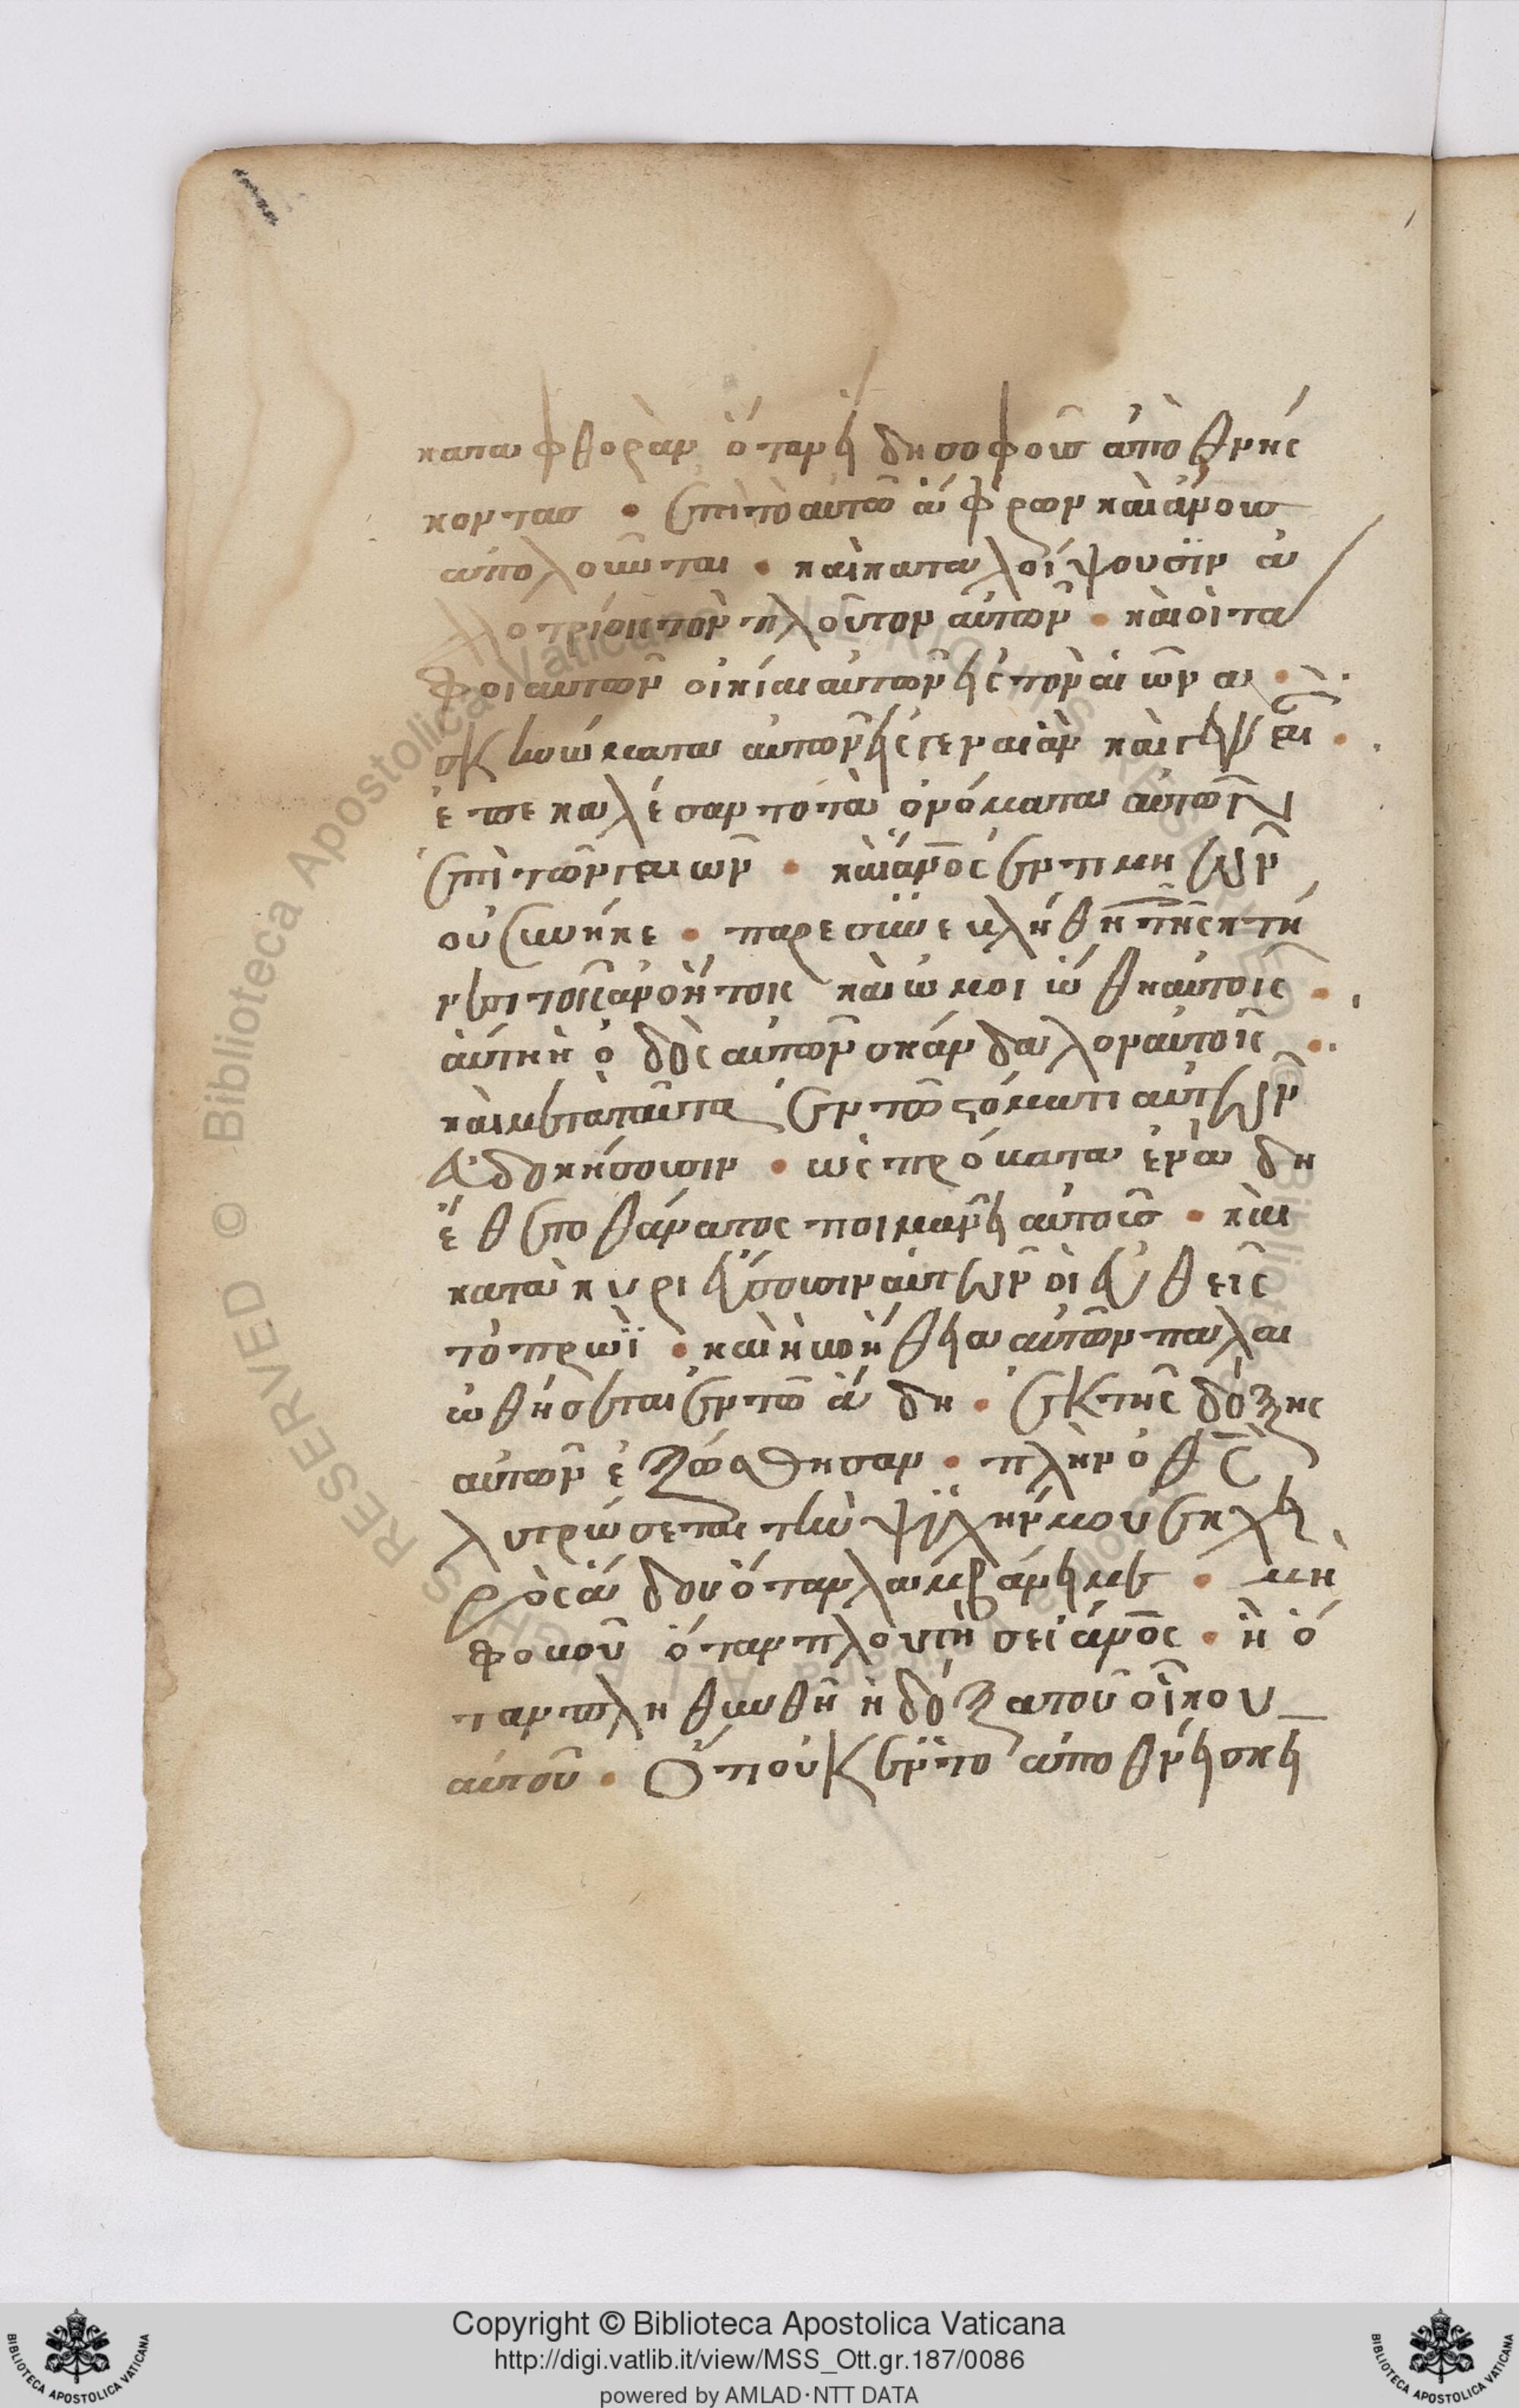 καταφθορὰν ὅταν ἴδη σοφοῦσ ἀποθνής
κοντασ · ἐπιτὸαυτὼ ἄφρων καὶ ἄνουσ
ἀπολοῦνται · καὶ καταλείψουσϊν ἀ
λλοτρίοις τὸν πλοῦτον αὐτῶν · καὶ οἱ τα
φοι αυτῶν οἰκίαι αυτῶν εἰς τὸν αἰῶνα ·
σκηνώματα αὐτῶν εἰς γενεὰν καὶ γενεὰν ·
ἐπεκαλέσαντο τὰ ὀνόματα αὐτῶν
ἐπὶ τῶν γαιῶν · καὶ ἄνος ἐν τιμῆ ὢν
οὐ συνήκε · παρεσυνεβλήθη τοῖς κτή
νεσι τοῖς ἀνοήτοις καὶ ὡμοιώθη αὐτοίς ·
ἁύτη ἡ ὁδὸς αὐτῶν σκάνδαλον αὐτοῖς ·
καὶ μετα ταῦτα ἐν τῶ στόματι αὐτῶν
εὐδοκήσουσιν · ὡς πρόβατα ἐν ἅδη
ἔθεντο θάνατος ποιμανεῖ αὐτοὺσ · καὶ
κατακυριεύσουσιν αὐτῶν οἱ εὐθεῖς
τὸ πρωῒ · καὶ ἡ βοήθεια αὐτῶν παλαι
ωθήσεται ἐν τῶ ἅδη · ἐκ τῆς δόξης
αὐτῶν ἐξώσθησαν · πλὴν ὁ θς
λυτρώσεται τὴν ψυχήν μου ἐκ χει
ρὸς ἅδου ὅταν λαμβάνει με · μὴ
φοβοῦ ὅταν πλουτήσει ἄνος · ἢ ὅ
ταν πληθυνθῆ ἡ δόξα τοῦ οἴκου
αὐτοῦ · Ὅτι οὐκ ἐν τῶ ἀποθνήσκει
Copyright © Biblioteca Apostolica Vaticana
http://digi.vatlib.it/view/MSS_Ott.gr.187/0086
powered by AMLAD·NTT DATA